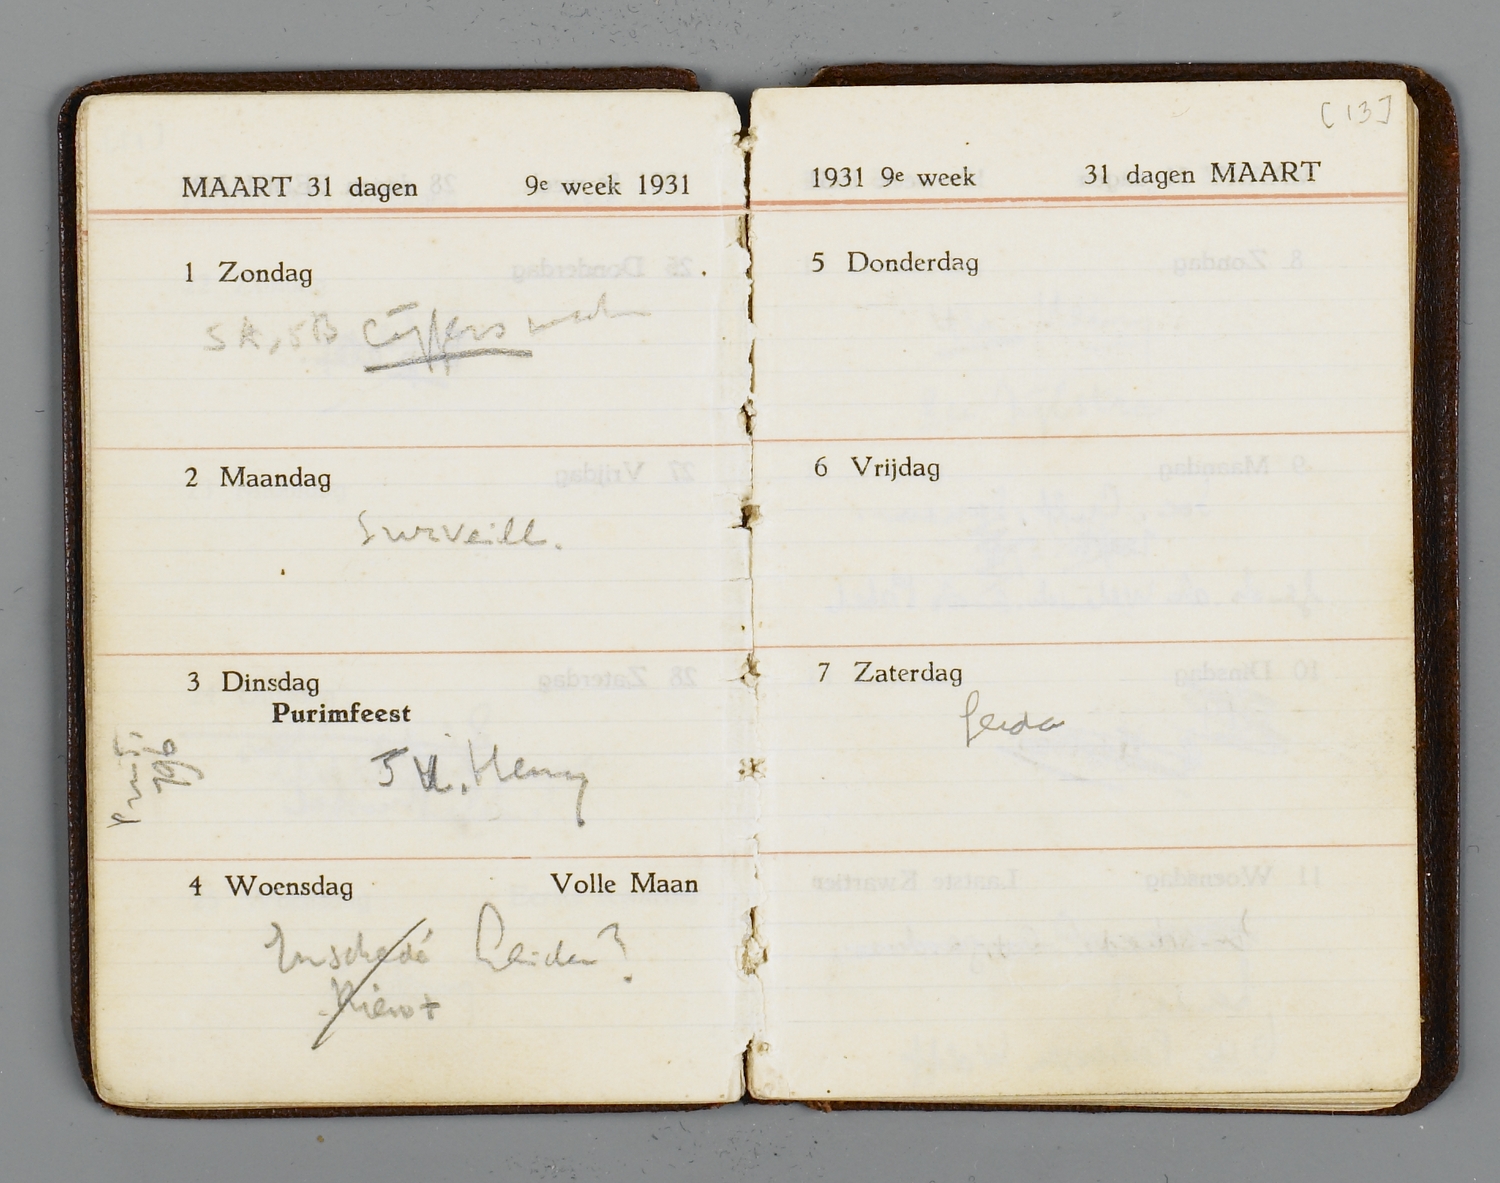 MAART 31 dagen 9e week 1931
1 Zondag
5A, 5B Cijfers
2 Maandag
Surveill.
3 Dinsdag
Purimfeest
Henny
4 Woensdag Volle Maan
Enschedé Leiden?
[13]
1931 9e week 31 dagen MAART
5 Donderdag
6 Vrijdag
7 Zaterdag